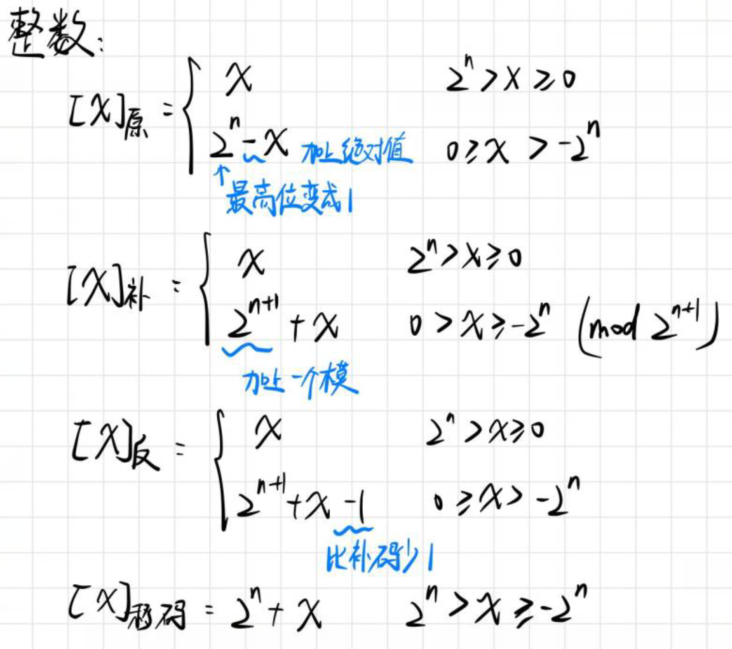 整数:
[X]原 = { x 2^n > x ≥ 0
2^n - x 加上绝对值 0 ≥ x > -2^n
↑最高位变成1
[X]补 = { x 2^n > x ≥ 0
2^{n+1} + x 0 > x ≥ -2^n (mod 2^{n+1})
加上一个模
[X]反 = { x 2^n > x ≥ 0
2^{n+1} + x - 1 0 ≥ x > -2^n
比补码少1
[X]移码 = 2^n + x 2^n > x ≥ -2^n